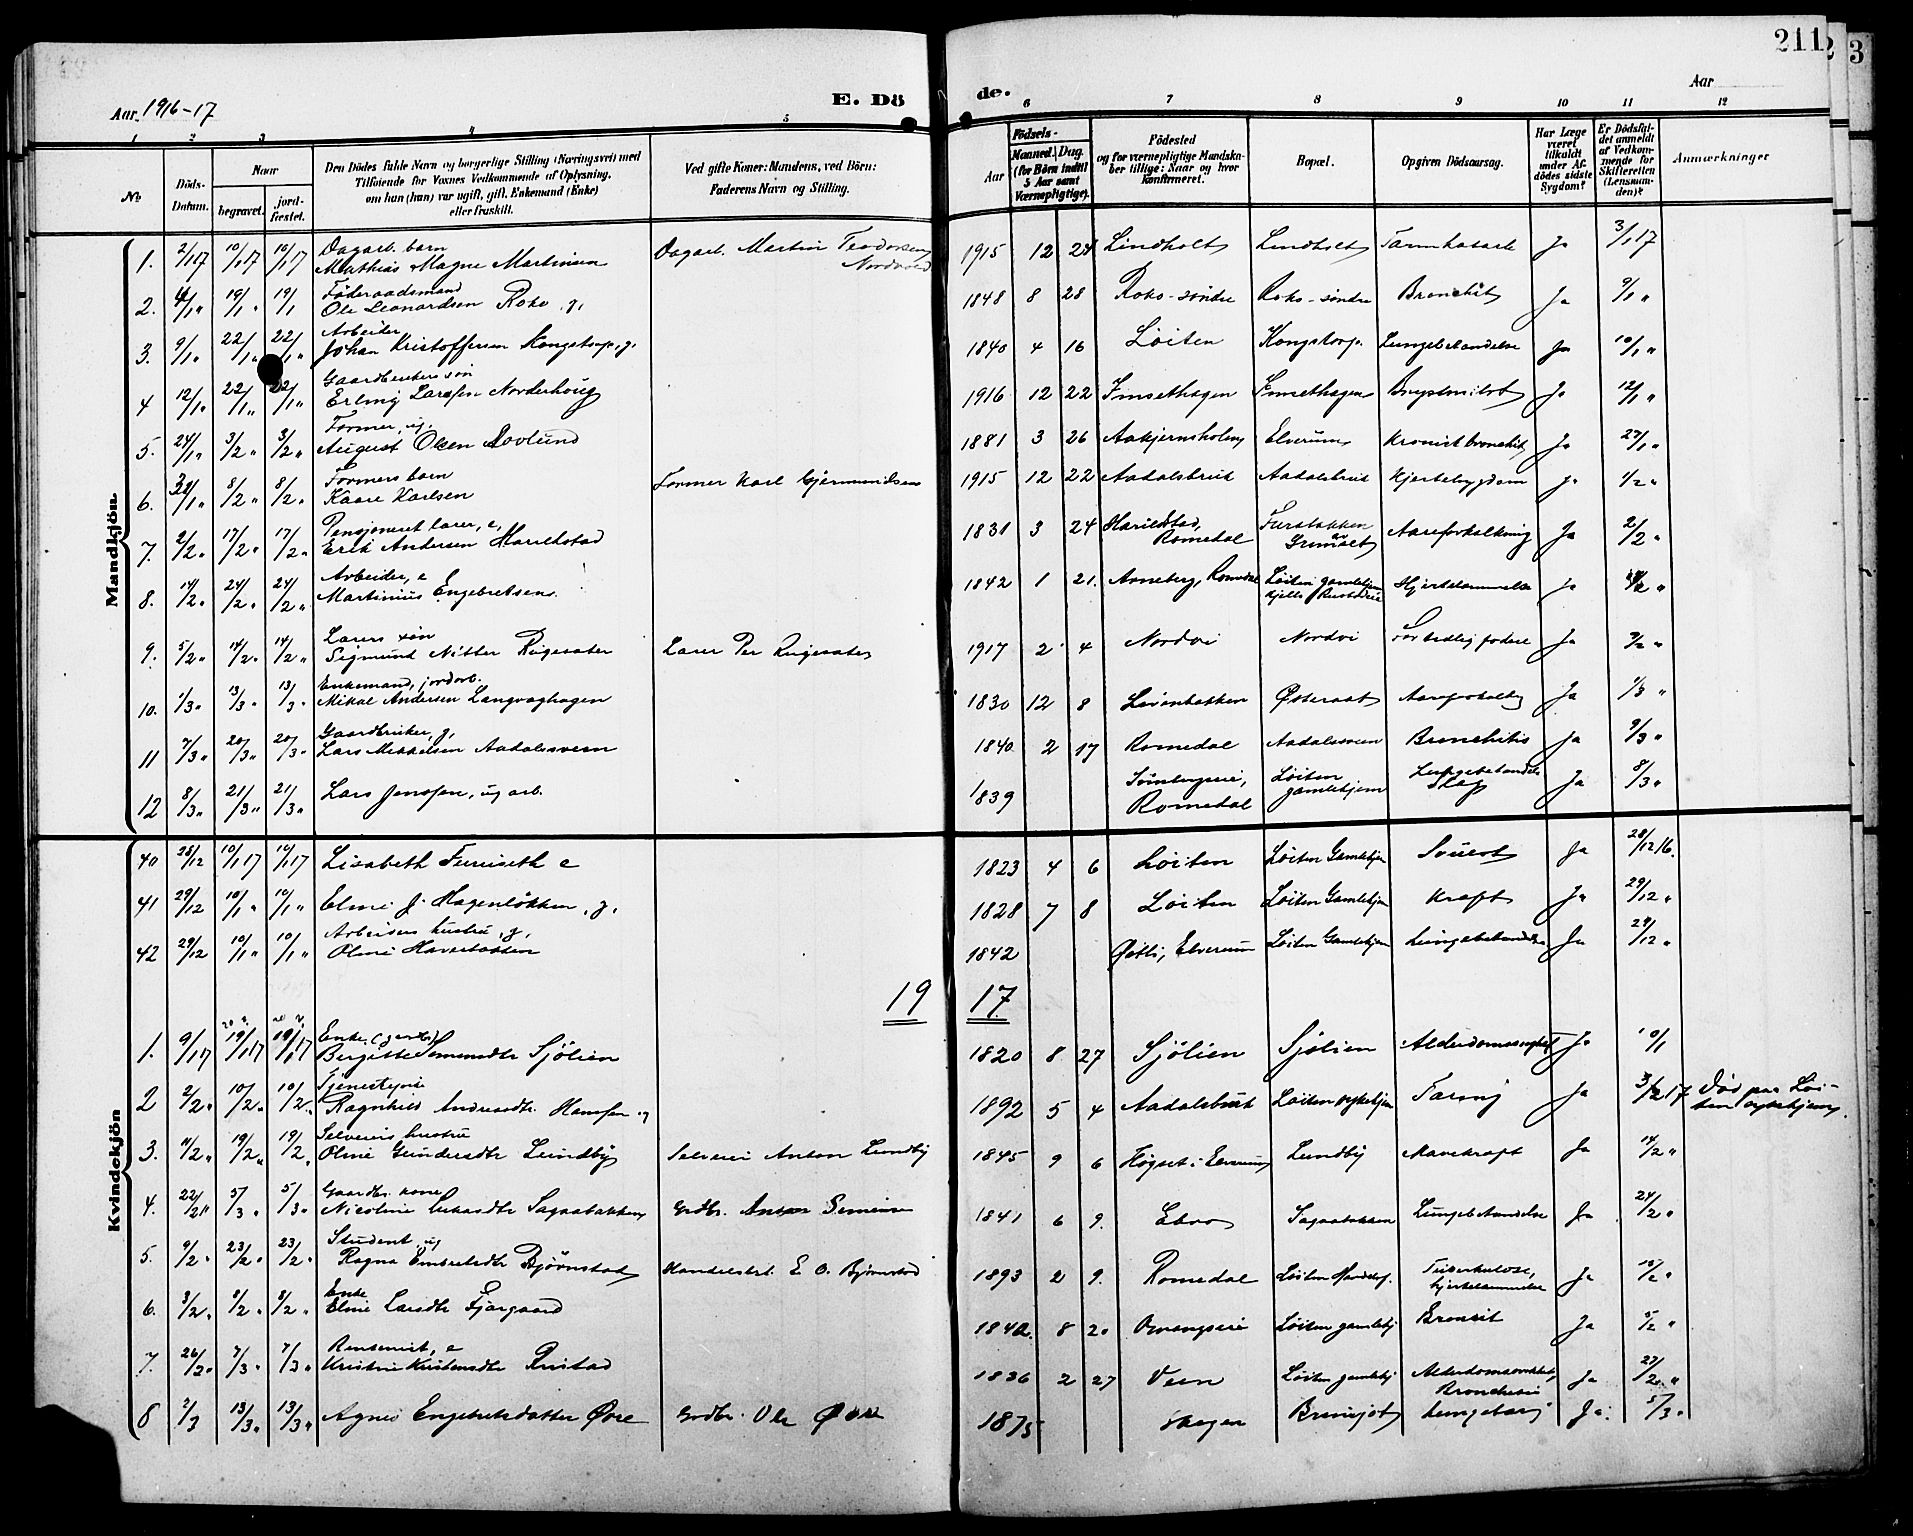 211
2
3
Aar 1916-17
E. Dö
de.
Aar
1 2 3 4 5 6 7 8 9 10 11 12
No
Döds-Datum.
Naar
begravet.
jord-fæstet.
Den Dödes fulde Navn og borgerlige Stilling (Næringsvei) med
Tilföiende for Voxnes Vedkommende af Oplysning,
om han (hun) var ugift, gift, Enkemand (Enke)
eller fraskilt.
Ved gifte Koner: Mandens, ved Börn:
Faderens Navn og Stilling.
Födsels-
Aar
Maaned. Dag
(for Börn indtil
5 Aar samt
Værnepligtige).
Födested
og for værnepligtige Mandska-
ber tillige: Naar og hvor
konfirmeret.
Bopæl.
Opgiven Dödsaarsag.
Har Læge
været
tilkaldt
under Af-
dödes sidste
Sygdom?
Er Dödsfal-
det anmeldt
af Vedkom-
mende for
Skifteretten
(Lensman-
den)?
Anmærkninger
Mandkjön
1. 2/1 17 10/1 17 10/1 17 Dagarb. barn Mathias Magne Martinsen Dagarb. Martin Teodorsen Nordvold 1915 12 24 Lindholt Lindholt Ja 3/1 17
2. 4/1 " 19/1 " 19/1 Föderaadsmand Ole Leonardsen Roko g. 1848 8 28 Roko-söndre Roko-söndre Bronchit Ja 9/1 "
3. 9/1 " 22/1 " 22/1 " Arbeider, Johan Kristoffersen Kongstorp, g. 1840 4 16 Löiten Kongstorp Lungebetændelse Ja 10/1 "
4 12/1 " 22/1 " 22/1 " Gaardbrukers sön Erling Larsen Norderhoug 1916 12 22 Imsethagen Imsethagen Ja 12/1 "
5. 24/1 " 3/2 " 3/2 " Former, ug. August Olsen Lovlund 1881 3 26 Elverum Kronisk bronchit Ja 27/1 "
6. 8/2 " 8/2 " Formers barn Kaare Karlsen Former Karl Gjermundsen 1915 12 22 Aadalsbruk Aadalsbruk Hjertesygdom Ja 1/2 "
7. 2/2 " 17/2 " 17/2 " Pensjoneret lærer, e, Erik Andersen Marildstad 1831 3 24 Romedal Aareforkalkning Ja 2/2 "
8. 14/2 " 24/2 " 24/2 " Arbeider, e Martinius Engebretsen 1842 1 21. Arneberg, Romedal Löiten gamlehjem Hjertelammelse Ja
9. 5/2 " 14/2 " 14/2 " Lærers sön Sigmund Nitter Rugsæter Lærer Per Rugsæter 1917 2 4 Nordvi Nordvi For tidlig födsel Ja
10. 1/3 " 13/3 " 13/3 " Enkemand, jordarb. Mikal Andersen Langvaghagen 1830 12 8 Österaat Aareforkalkn Ja 1/3 "
11 7/3 " 20/3 " 20/3 " Gaardbruker, g, Lars Mikkelsen Aadalsveen 1840 2 17 Romedal Aadalsveen Bronchitis Ja 9/3 "
12 8/3 " 21/3 " 21/3 " Lars Jensen, ug arb. 1839 Romedal Löiten gamlehjem Ja 8/3 "
Kvindekjön
40 28/12 10/1 17 10/1 17 Lisabeth Furuseth e 1823 4 6 Löiten Löiten Gamlehjem Ja 28/12 16.
41 29/12 10/1 " 10/1 " Elmi J. Hagenlökken, g. 1828 7 8 Löiten Löiten Gamlehjem Kræft Ja 29/12 "
42 29/12 10/1 " 10/1 " Arbeiders hustru, g, Oline 1842 Elverum Löiten Gamlehjem Lungebetændelse Ja 29/12 "
19 17
1. 9/1 17 19/1 17 19/1 17 Enke Bergitte Simensdtr Sjölien 1820 8 27 Sjölien Sjölien Alderdomssvaghet Ja 10/1
2 2/2 " 10/2 " 10/2 " Tjenestepike Ragnhild Andreasdtr. Hansen ug 1892 5 4 Aadalsbruk Löiten sykehjem Tæring Ja 3/2 17 Död paa Löi-ten sykehjem.
3. 11/2 " 19/2 " 19/2 " Selveiers hustru Oline Gundersdtr Lundby Selveier Anton Lundby 1845 9 6 Högset i Elverum Lundby Mavekræft Ja 14/2 "
4. 22/2 " 5/3 " 5/3 " Gaardbr. kone Nicoline Sagaabakken Grdbr. Simensen 1841 6 9. Ebro Sagaabakken Lungebetændelse Ja 24/2 "
5. 9/2 " 23/2 " 23/2 " Student, ug Ragna Embretsdtr Björnstad Handelsbst. E. O. Björnstad 1893 2 9. Romedal Löiten Handelsf. Tuberkulose, hjertelammelse Ja 10/2 "
6. 3/2 " 8/2 " 8/2 " Enke Elmi Larsdtr Fjærgaard 1842. 8 20 Löiten gamlehj Bronkit Ja 5/2 "
7. 26/2 " 7/3 " 7/3 " Kristine Kristensdtr Rustad 1836 2 27 Veen Löiten gamlehj Alderdomssvakhet, Ja 27/2 "
8 2/3 13/3 " 13/3 " Agnes Engebretsdatter Övre Grdbr. Ole Övre 1875 Skogen Ja. 5/3 "